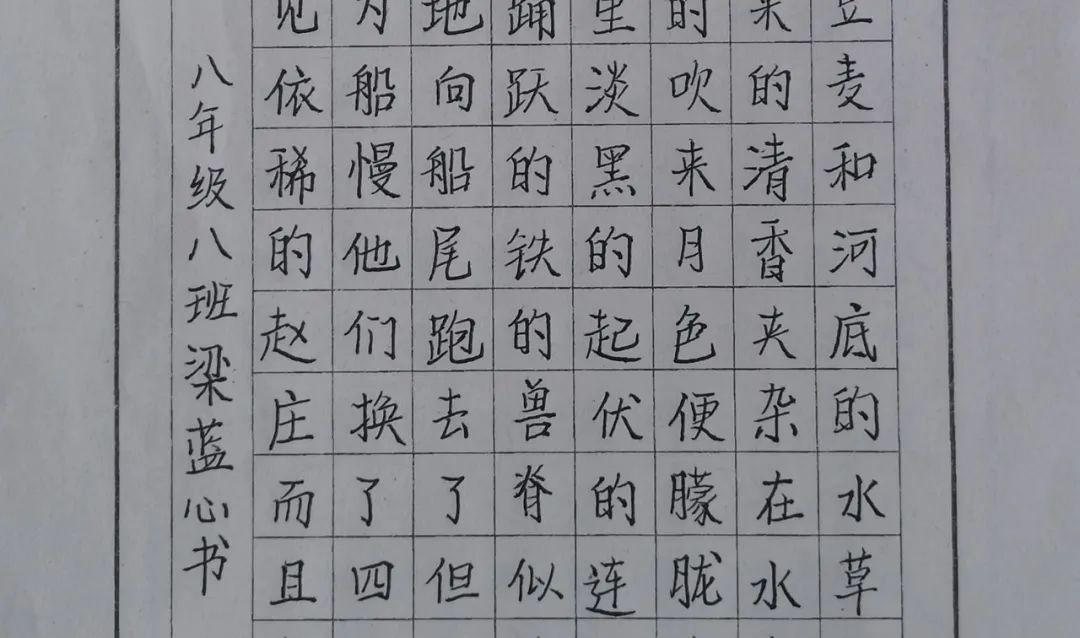 豆麦和河底的水草
来的清香夹杂在水
的吹来月色便朦胧
里淡黑的起伏的连
踊跃的铁的兽脊似
地向船尾跑去了但
为船慢他们换了四
见依稀的赵庄而且
八年级八班梁蓝心书